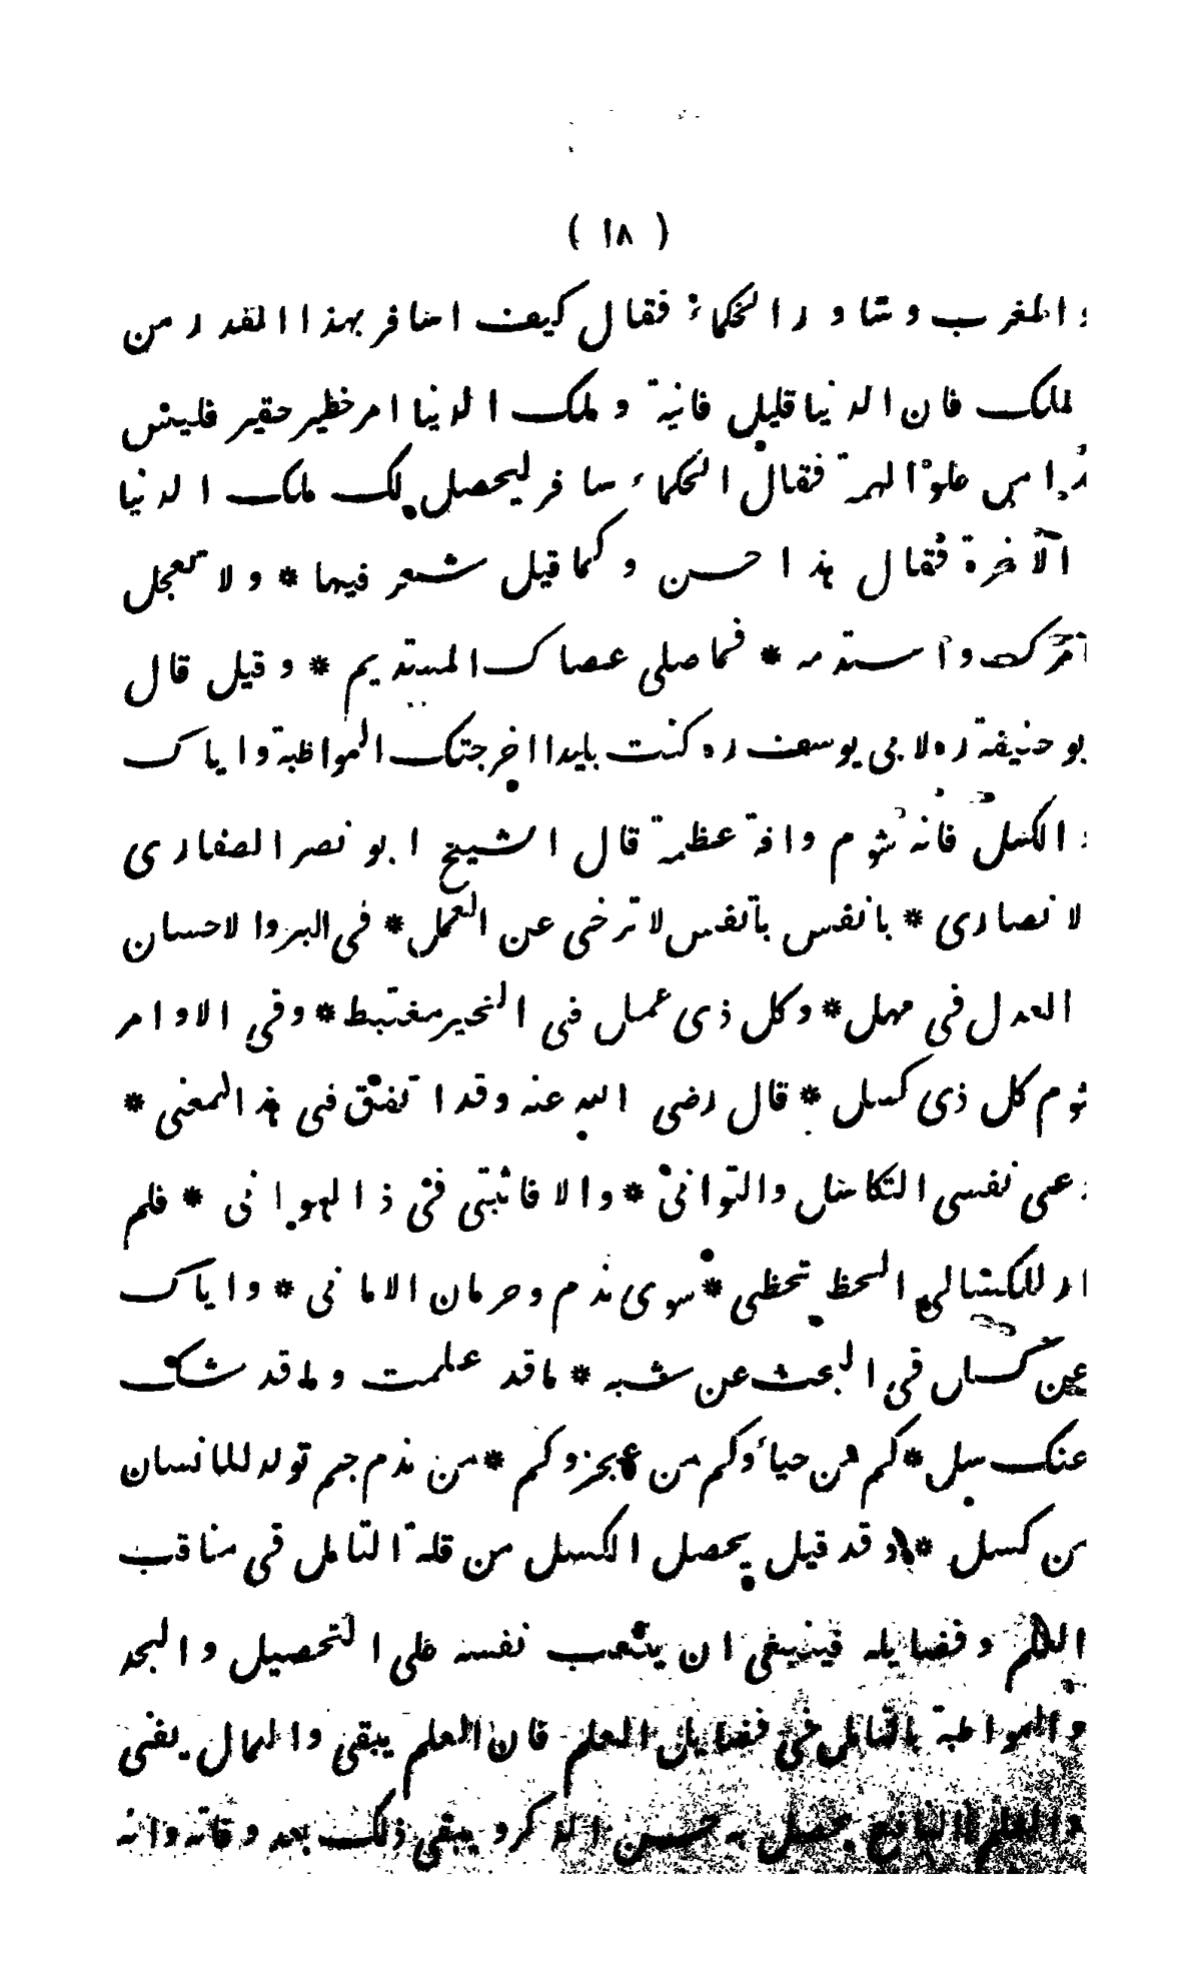 ( ١٨ )
والمغرب وشاور الحكماء فقال كيف اسافر بهذا القدر من
الملك فان الدنيا قليل فانية وملك الدنيا امر حظير حقير فليس
هذا من علوّ الهمة فقال الحكماء سافر ليحصل لك ملك الدنيا
الآخرة فقال هذا حسن وكما قيل شعر فيها * ولا تعجل
امرك واستدمه * فما صلى عصاك المستديم * وقيل قال
بو حنيفة ره لابى يوسف ره كنت بليدا اخرجتك المواظبة واياك
والكسل فانه شوم وافة عظمة قال الشيخ ابو نصر الصفارى
لانصارى * يانفس يانفس لا ترخى عن العمل * فى البر والاحسان
العدل فى مهل * وكل ذى عمل فى الخير مغتبط * وفى الاوامر
شوم كل ذى كسل * قال رضى الله عنه وقد اتفق فى هذ المعنى *
دعى نفسى التكاسل والتوانى * والا فاثبتى فى ذا الهوانى * فلم
ار للكسالى الحظ تحظى * سوى ندم وحرمان الامانى * واياك
عن كسل فى البحث عن شبه * ما قد علمت وما قد شك
عنك سل * كم من حياء وكم من عجز وكم * من ندم جم تولد للانسان
من كسل * وقد قيل يحصل الكسل من قلة التامل فى مناقب
العلم وفضايله فينبغى ان يتعب نفسه على التحصيل والجد
والمواظبة بالتامل فى فضايل العلم فان العلم يبقى والمال يفنى
والعلم النافع يحصل به حسن الذكر ويبقى ذلك بعد وفاته وانه